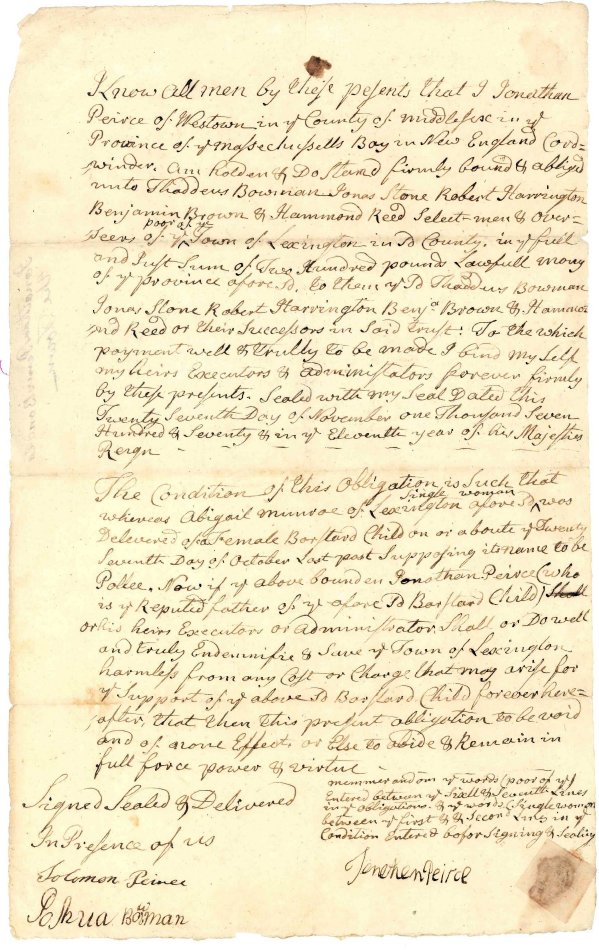 Know all men by these pesents that I Jonathan
Peirce of Westown in ye County of middlesex in ye
Province of ye Massechussells Bay in New England Cord=
winder. am holden & Do Stand firmly bound & abliged
unto Thaddeus Bowman Jonas Stone Robert Harrington
Benjamin Brown & Hammond Reed Select=men & Over=
poor of ye
seers of ye Town of Lexington in sd County. in ye full
and Just Sum of Two Hundred pounds Lawfull mony
of ye province afore sd. to them ye sd Thaddeus Bowman
Jonas Stone Robert Harrington Benja Brown & Hammo
nd Reed or their Successors in Said trust: To the which
payment well & trully to be made I bind my Self
my heirs Executors & administrators forever firmly
by these presents. Sealed with my Seal Dated this
Twenty Seventh Day of November one Thousand Seven
Hundred & Seventy & in ye Eleventh year of his Majesties
Reign
The Condition of this Obligation is Such that
Single woman
whereas Abigail munroe of Lexington afore sd was
Delevered of a Female Barstard Child on or aboute ye Twenty
Seventh Day of October Last past Supposing its name to be
Pollee. Now if ye above bounden Jonathan Peirce (who
is ye Reputed father of ye afore sd Barstard Child) Shall
or his heirs Executors or administrator Shall or Do well
and truly Endemnifie & Save ye Town of Lexington
harmless from any Cost or Charge that may arise for
ye Support of ye above sd Barstard Child forever here=
after, that then this present obligation to be void
and of none Effect or Else to abide & Remain in
full force power & virtue
memmerandom ye words (poor of ye)
Entered betwen ye Sixth & Seventh Lines
in ye obligations. & ye words (Single woman
between ye first & Second Lines in ye
Condition Entered befor Signing & Sealing
Signed Sealed & Delivered
In Presence of us
Solomon Peirce
Joshua Bowman
Jonathen Peirce